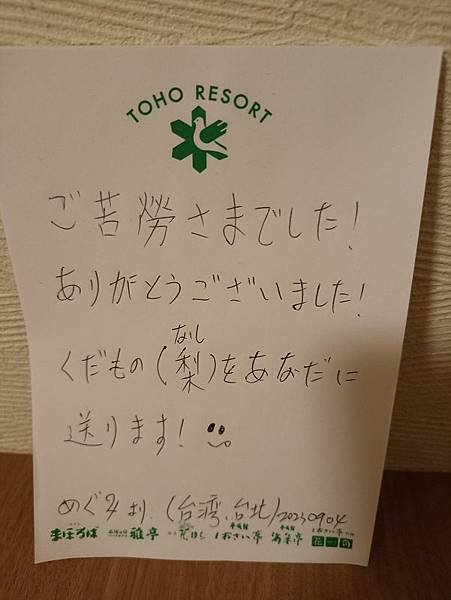 TOHO RESORT
ご苦勞さまでした!
ありがとうございました!
なし
くだもの(梨)をあなだに
送ります!
めぐみより (台湾、台北) 20230904
まほろば 雅亭 しおさい亭 海峯亭 花一句